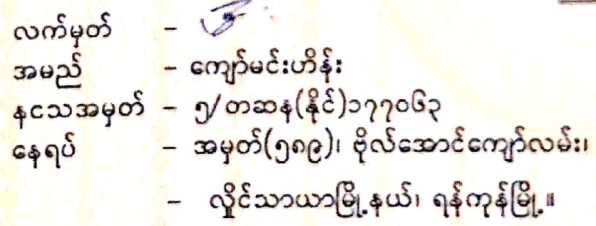 လက်မှတ် -
အမည် - ကျော်မင်းဟိန်း
နငသအမှတ် - ၅/တဆန(နိုင်)၁၇၇၀၆၃
နေရပ် - အမှတ်(၅၈၉)၊ ဗိုလ်အောင်ကျော်လမ်း၊
- လှိုင်သာယာမြို့နယ်၊ ရန်ကုန်မြို့။